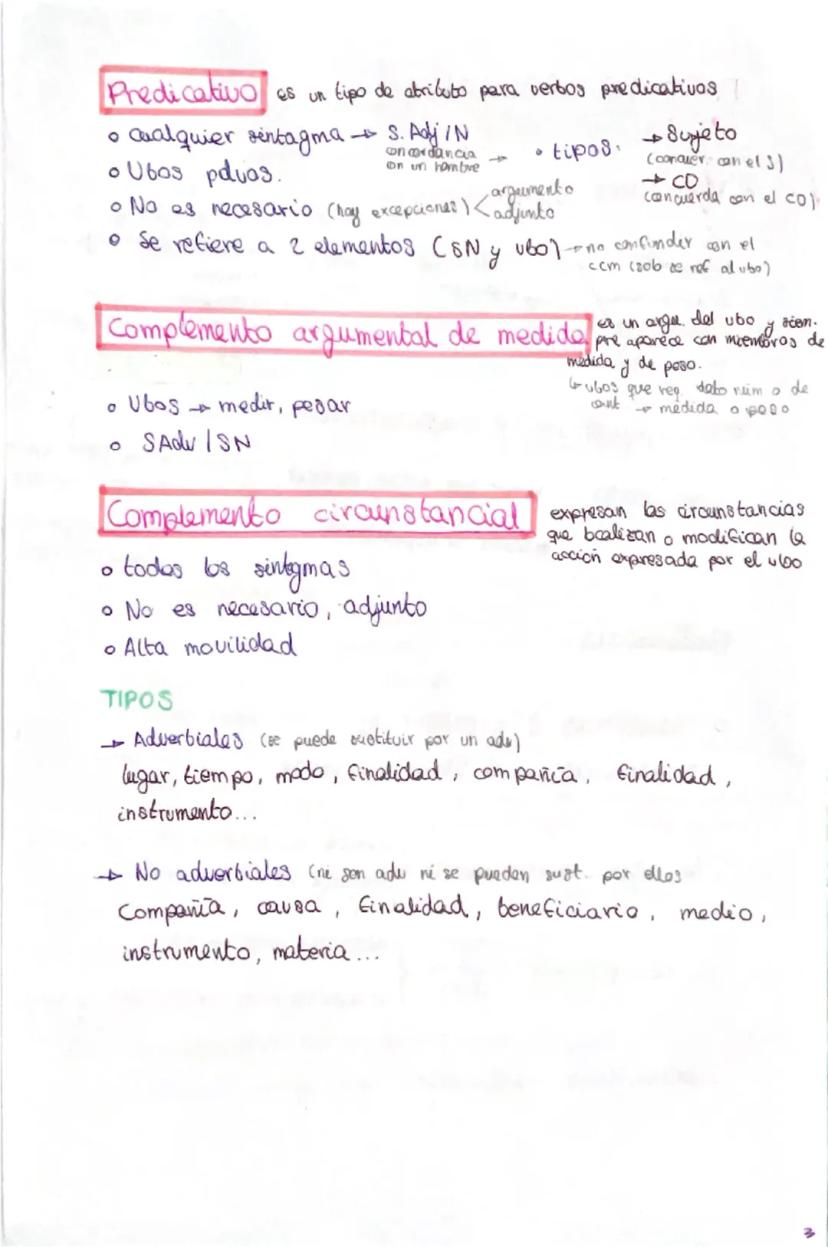 Predicativo es un tipo de atributo para verbos predicativos
o cualquier sintagma → S. Adj/N
concordancia
con un nombre →
• tipos:
→ Sujeto
(concuer. con el S)
→ CD
(concuerda con el CD)
o Vbos pdvos.
o No es necesario (hay excepciones) <
argumento
adjunto
o Se refiere a 2 elementos (SN y vbo) → no confunder con el
ccm (solo se ref al vbo)
Complemento argumental de medida
es un argu. del vbo y siem-
pre aparece con miembros de
medida y de peso.
↳ vbos que req. dato núm o de
cant → medida o peso
o Vbos → medir, pesar
o SAdv / SN
Complemento circunstancial
expresan las circunstancias
que localizan o modifican la
acción expresada por el vbo
o todos los sintgmas
o No es necesario, adjunto
o Alta movilidad
TIPOS
→ Adverbiales (se puede sustituir por un adv)
lugar, tiempo, modo, finalidad, compañía, finalidad,
instrumento...
→ No adverbiales (ni son adv ni se pueden sust. por ellos
Compañía, causa, finalidad, beneficiario, medio,
instrumento, materia...
3